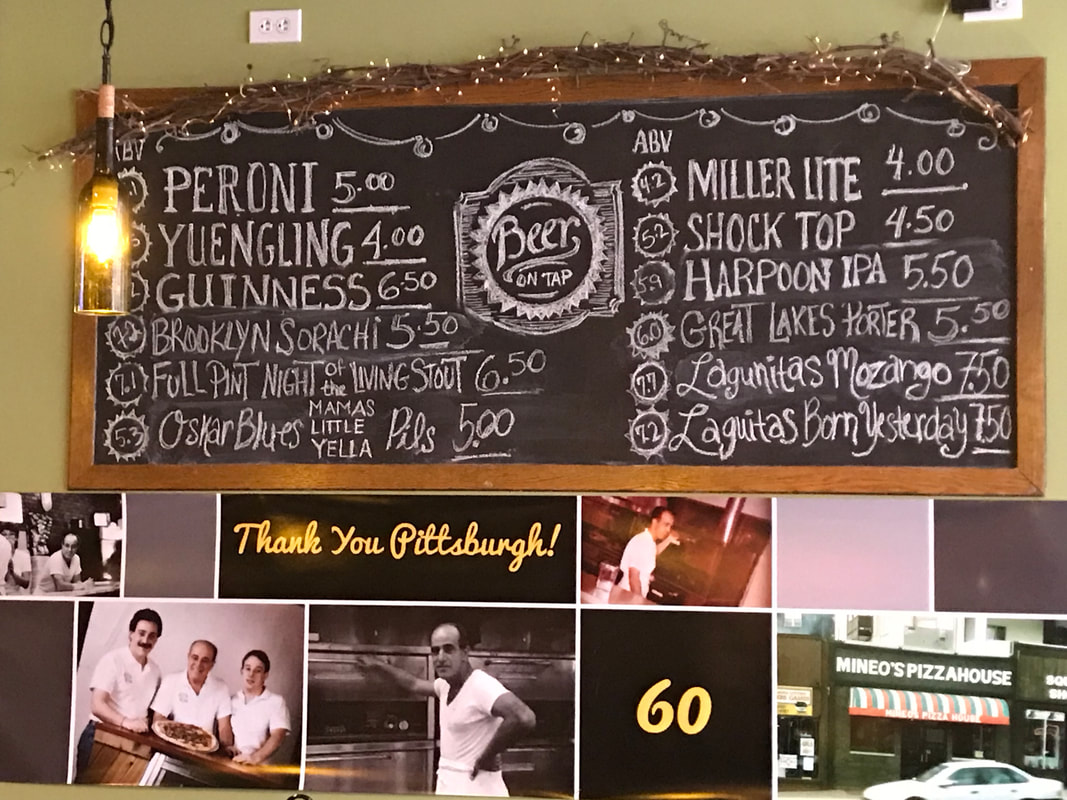 ABV
PERONI 5.00
YUENGLING 4.00
GUINNESS 6.50
BROOKLYN SORACHI 5.50
7.1 FULL PINT NIGHT of the LIVING STOUT 6.50
5.3 Oskar Blues MAMAS LITTLE YELLA Pils 5.00
Beer
ON TAP
ABV
4.2 MILLER LITE 4.00
5.2 SHOCK TOP 4.50
5.9 HARPOON IPA 5.50
6.0 GREAT LAKES PORTER 5.50
7.7 Lagunitas Mozango 7.50
7.2 Laguitas Born Yesterday 7.50
Thank You Pittsburgh!
60
MINEO'S PIZZA HOUSE
MINEO'S PIZZA HOUSE